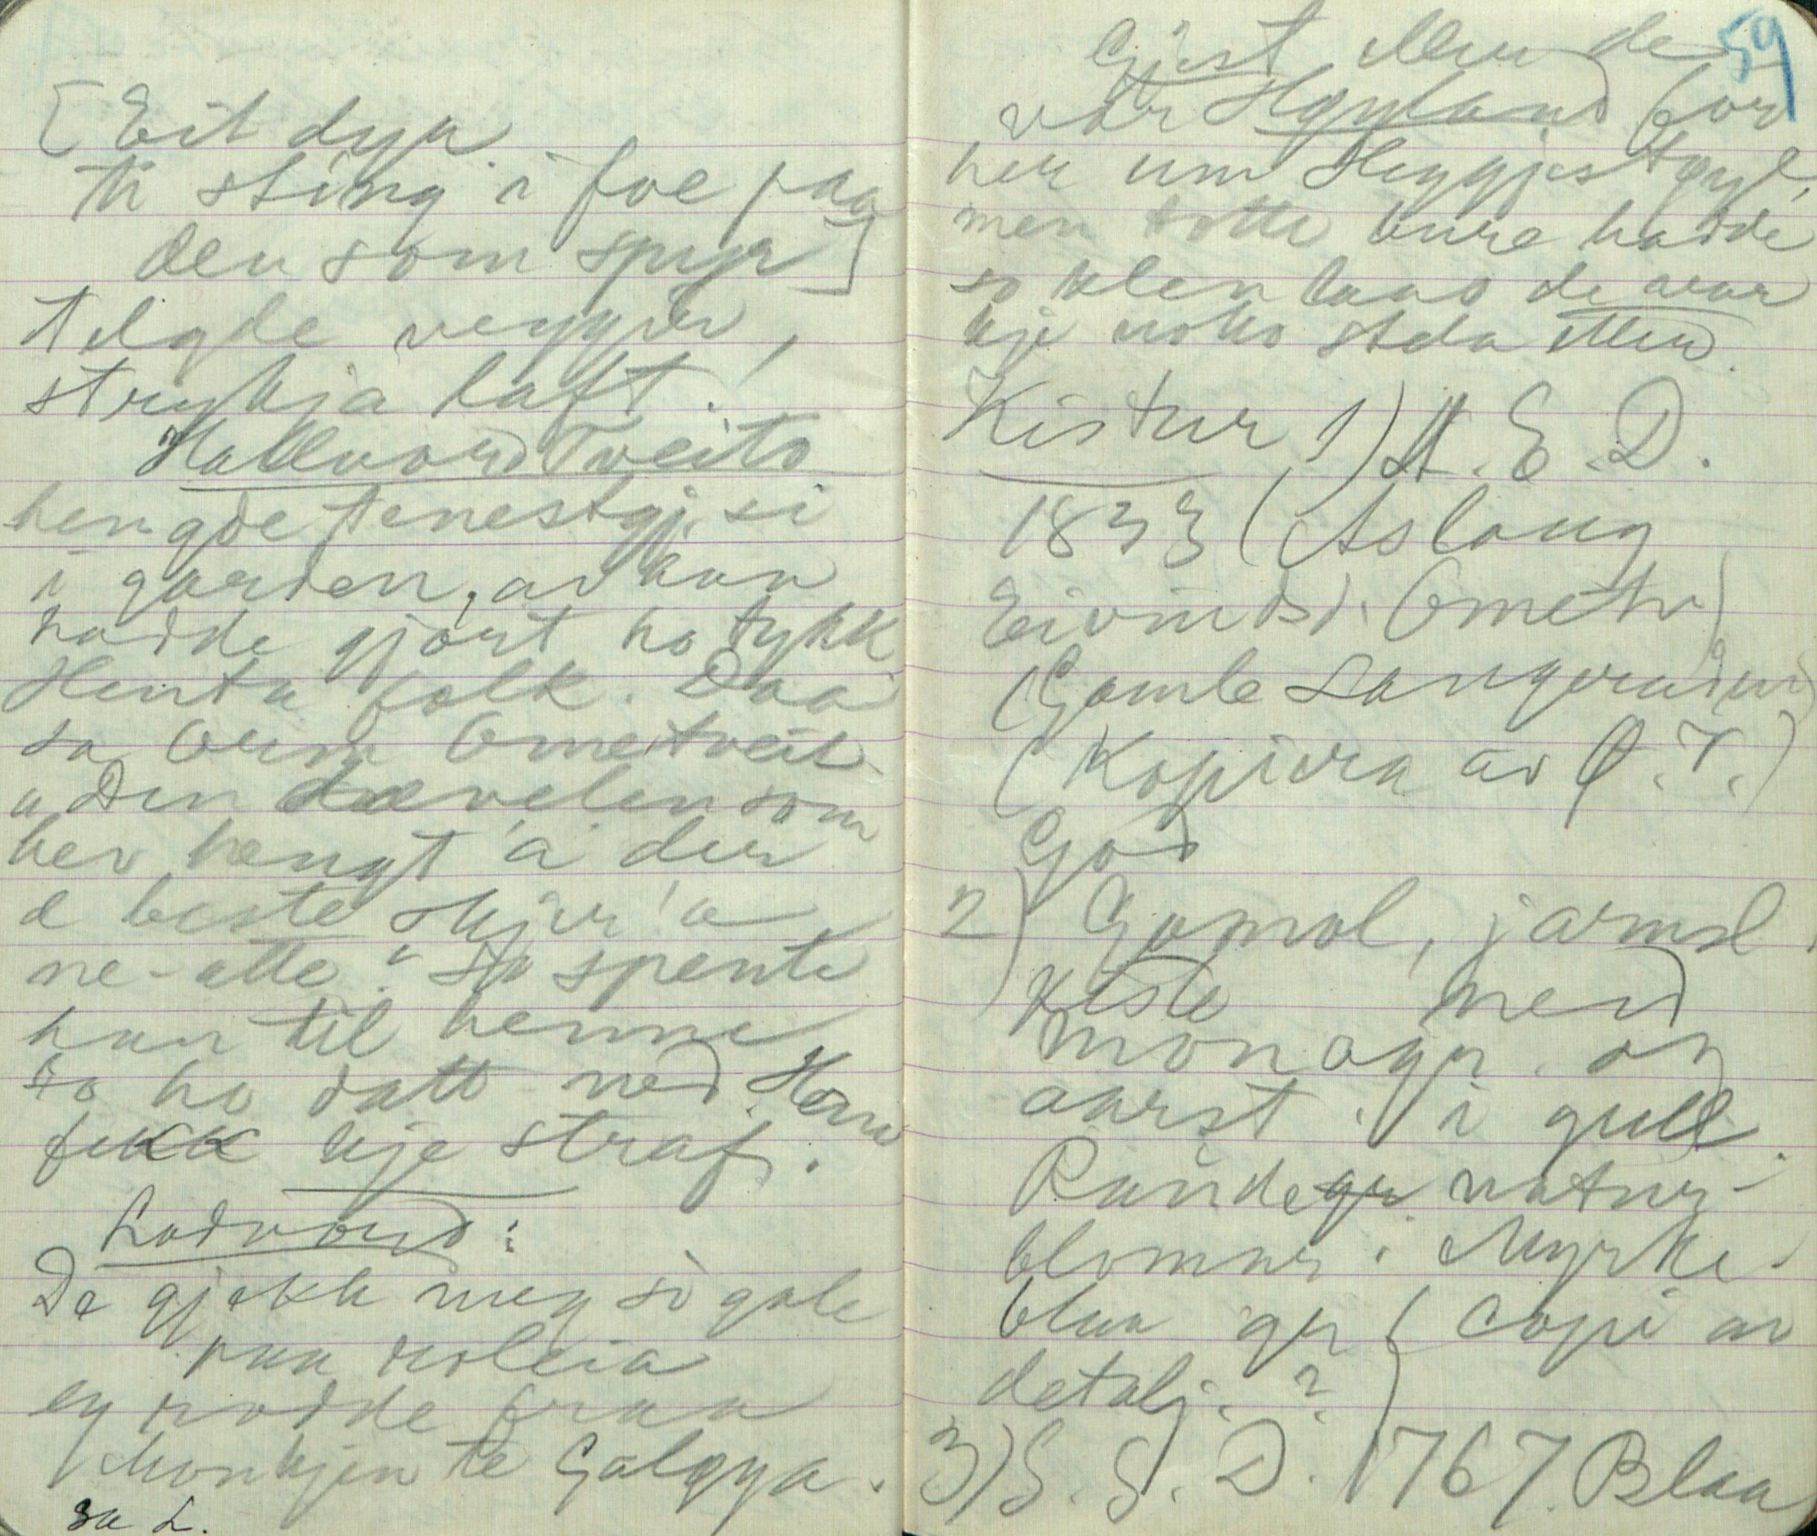 [Eit dyr
te sting i foe paa
den som spyr]
telgde veggir,
strykja laft.
Hallvord Tveito
hengde tenestgj. si
i garden, av han
hadde gjort ho tykk
Henta folk. Daa
sa Orm Ometveit
a den dævelen som
hev hengt 'a der
e beste skjer 'a
ne-atte." So spente
han til henne
so ho datt ned. Han
fekk kje straf.
Lodvord:
De gjekk meg so gale
paa roleia
eg rodde fraa
Monkjen te Galgya.
sa L.
59
Gjest Men de
var Høyland for
her um Heggjestøyl,
men totte bure hadde
so klen laas de var
kje noko stela Men.
Kistur 1) A. E. D.
1833 (Aslaug
Eivindsd. Ometv)
(Gamle Langerudin)
(Kopiera av Ø. V.)
God
2) Gomol, jarnsl.
kiste med
monogr. og
aarst. i gull.
Rande gr. natur-
blomur. Myrke-
blaa gr (Copi av
detalj. ?)
3) S. S. D. 1767. Blaa